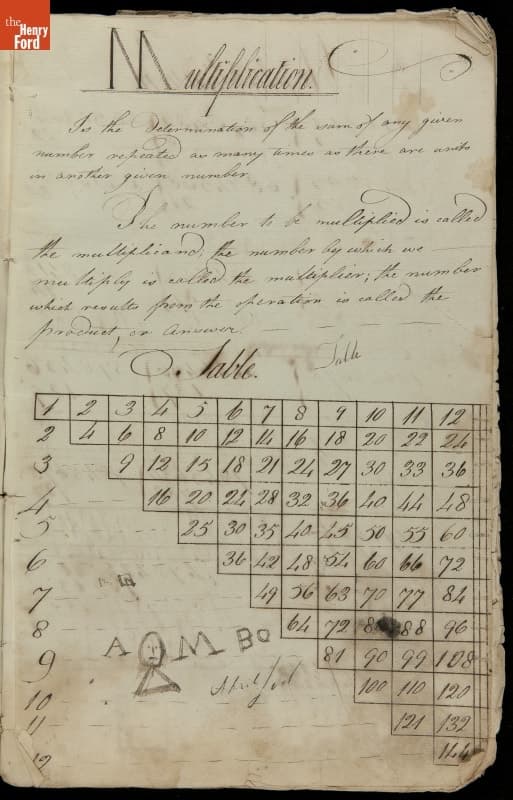 the
Henry
Ford
Multiplication.
Is the Determination of the sum of any given
number repeated as many times as there are units
in another given number
The number to be multiplied is called
the multiplicand, the number by which we
multiply is called the multiplier; the number
which results from the operation is called the
product, or answer.
Table. Table
1 2 3 4 5 6 7 8 9 10 11 12
2 4 6 8 10 12 14 16 18 20 22 24
3 9 12 15 18 21 24 27 30 33 36
4 16 20 24 28 32 36 40 44 48
5 25 30 35 40 45 50 55 60
6 36 42 48 54 60 66 72
7 49 56 63 70 77 84
8 64 72 8 88 96
9 81 90 99 108
10 100 110 120
11 121 132
12 144
A O M BO